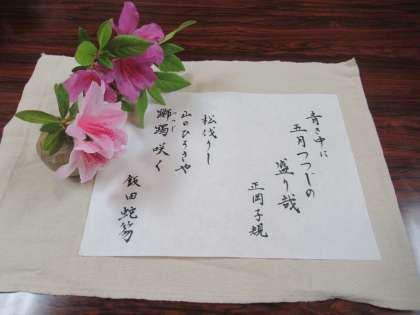 青き中に
五月つつじの
盛り哉
正岡子規
松伐りし
山のひろさや
躑躅咲く
つつじ
飯田蛇笏